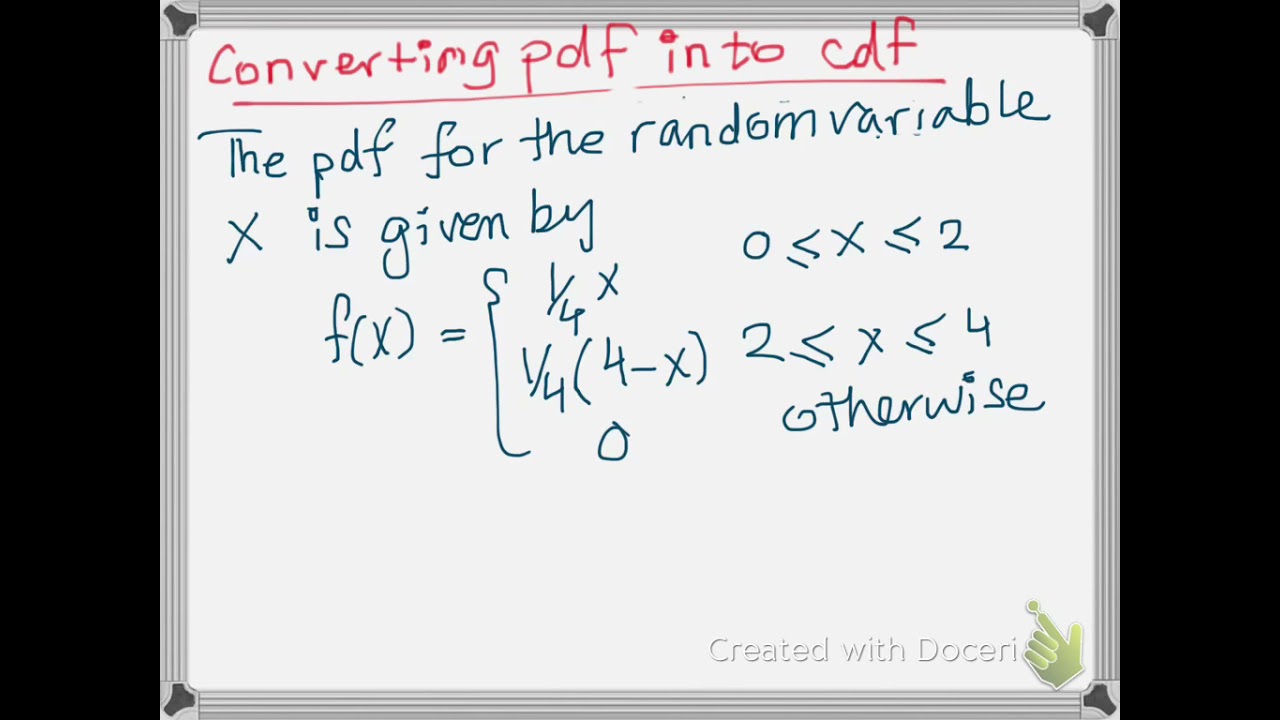 Converting pdf into cdf
The pdf for the random variable
X is given by
f(x) = { 1/4 x    0 ≤ x ≤ 2
1/4 (4-x)    2 ≤ x ≤ 4
0    otherwise
Created with Doceri